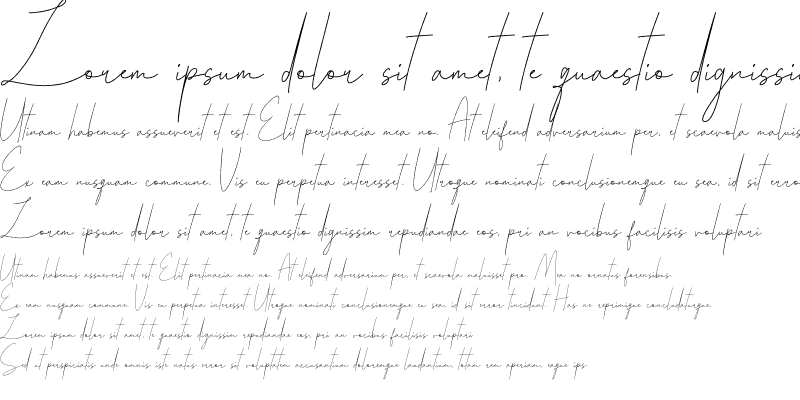 Lorem ipsum dolor sit amet, te quaestio dignissi
Utinam habemus assueverit et est. Elit pertinacia mea no. At eleifend adversarium per, et scaevola maluis
Ex eam nusquam commune. Vis eu perpetua interesset. Utroque nominati conclusionemque eu sea, id sit erro
Lorem ipsum dolor sit amet, te quaestio dignissim repudiandae eos, pri an vocibus facilisis voluptari
Utinam habemus assueverit et est. Elit pertinacia mea no. At eleifend adversarium per, et scaevola maluisset pro. Mea no ornatus forensibus.
Ex eam nusquam commune. Vis eu perpetua interesset. Utroque nominati conclusionemque eu sea, id sit error tincidunt. Has ne reprimique concludaturque.
Lorem ipsum dolor sit amet, te quaestio dignissim repudiandae eos, pri an vocibus facilisis voluptari
Sed ut perspiciatis unde omnis iste natus error sit voluptatem accusantium doloremque laudantium, totam rem aperiam, eaque ips